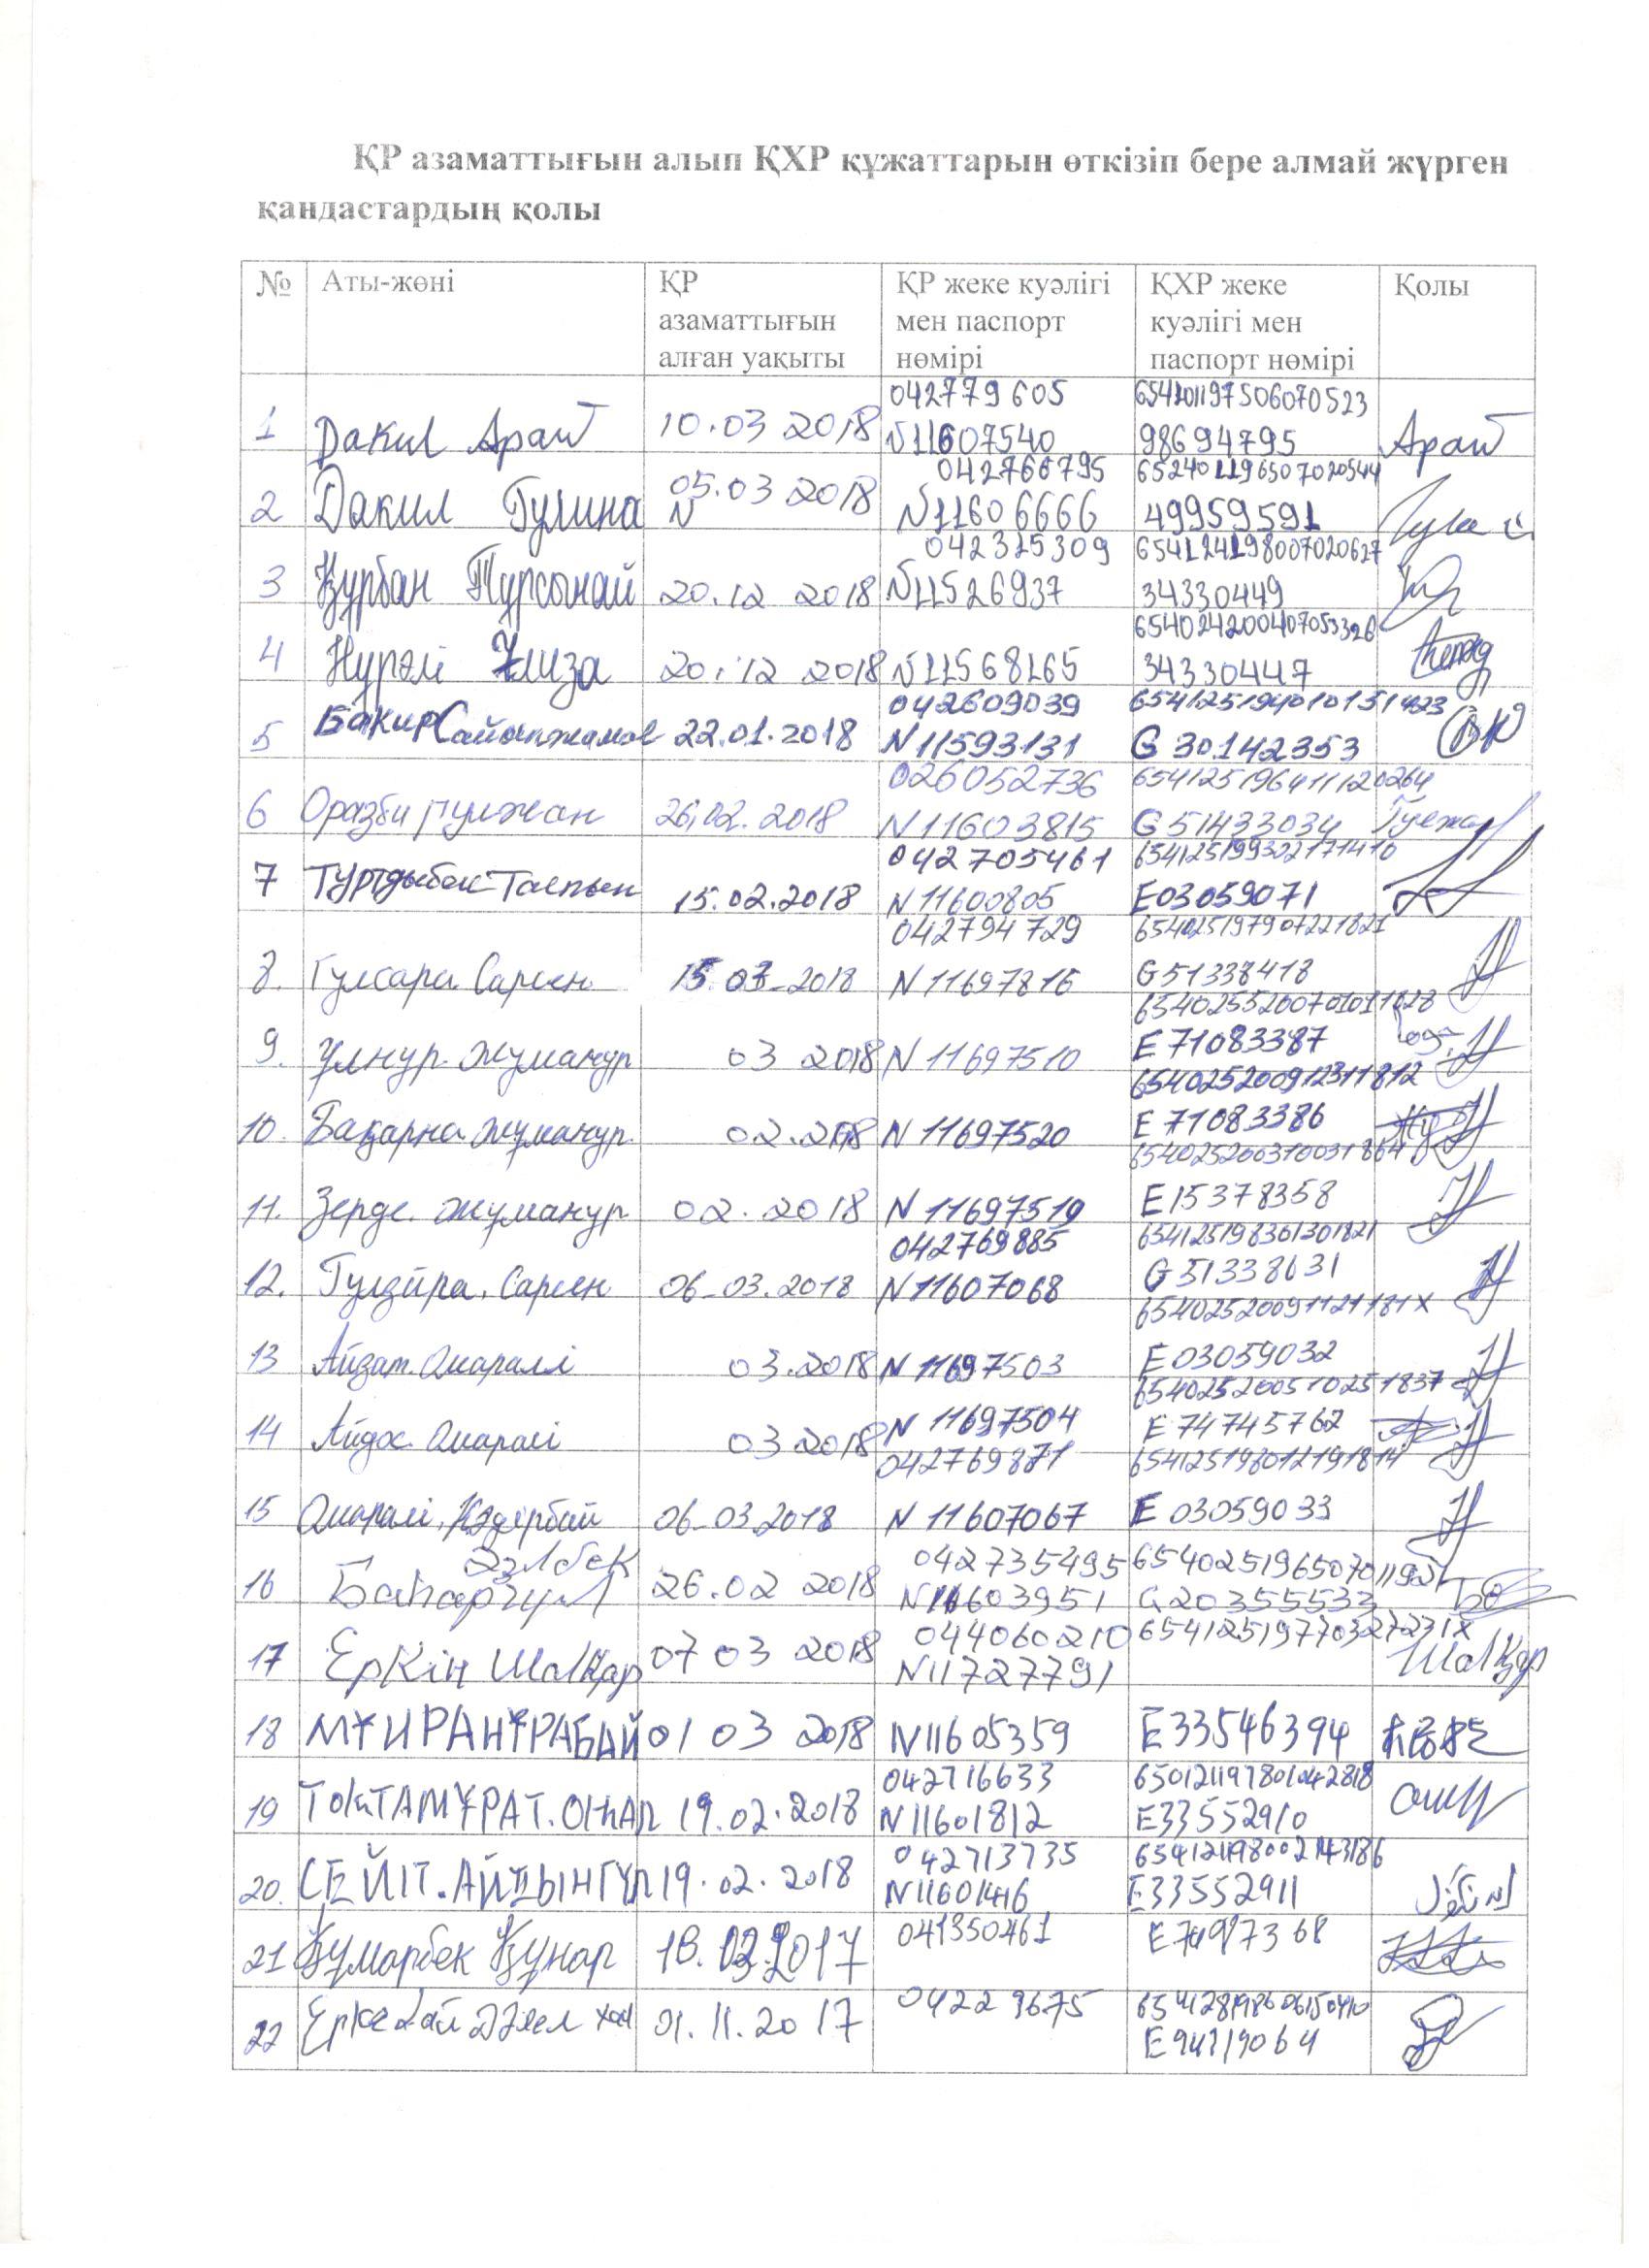 ҚР азаматтығын алып ҚХР құжаттарын өткізіп бере алмай жүрген
қандастардың қолы
№ Аты-жөні ҚР азаматтығын алған уақыты ҚР жеке куәлігі мен паспорт нөмірі ҚХР жеке куәлігі мен паспорт нөмірі Қолы
1 Дакил Арай 10.03 2018 042779605 N11607540 654201197506070523 98694795 Арай
2 Дакил Гулина 05.03 2018 042766795 N11606666 652401196507020544 49959591
3 Құрбан Турсынай 20.12 2018 042325309 N11526937 654124198007020627 34330449
4 Нурәлі Элиза 20.12 2018 N11568165 654024200407053326 34330447
5 Бакир 22.01.2018 042609039 N11593131 G 30142353
6 Оразби гулжан 26.02.2018 026052736 N11603815 654125196411120264 G51433034
7 Турдыбек Таспын 15.02.2018 042705461 N11600805 654125199302171410 E03059071
8. Гулсара Сарсен 15.03-2018 042794729 N11697816 654025197907221821 G51338418
9. Улнур Жуманур 03 2018 N11697510 E71083387
10. Бақарна Жуманур 02.2018 N11697520 654025200912311812 E71083386
11. Зерде. Жуманур 02.2018 N11697519 654025200310031864 E15378358
12. Гулзйра. Сарсен 06-03.2018 042769885 N11607068 654125198361301821 G51338631
13 Айзат. Омаралі 03.2018 N11697503 65402520091121181X E03059032
14 Айдос Омаралі 03 2018 N11697504 654025200510251837 E74745762
15 Омаралі. Кәдірбай 06-03.2018 042769871 N11607067 654125198012191814 E03059033
16 Әзлбек Баһаргүл 26.02 2018 042735495 N11603951 G20355533
17 Еркін Шалқар 07 03 2018 044060210 N11727791 65412519770327231X Шалқар
18 МҰИРАНҰРАБАЙ 01 03 2018 N11605359 E33546394
19 ТОКТАМҰРАТ. 19.02.2018 042716633 N11601812 650121197801042818 E33552910
20. СЕЙІТ.АЙДЫНГҮЛ 19.02.2018 042713735 654121198002143186 E33552911
21 Құмарбек Құнар 2017 041350461
22 01.11.2017 04229675